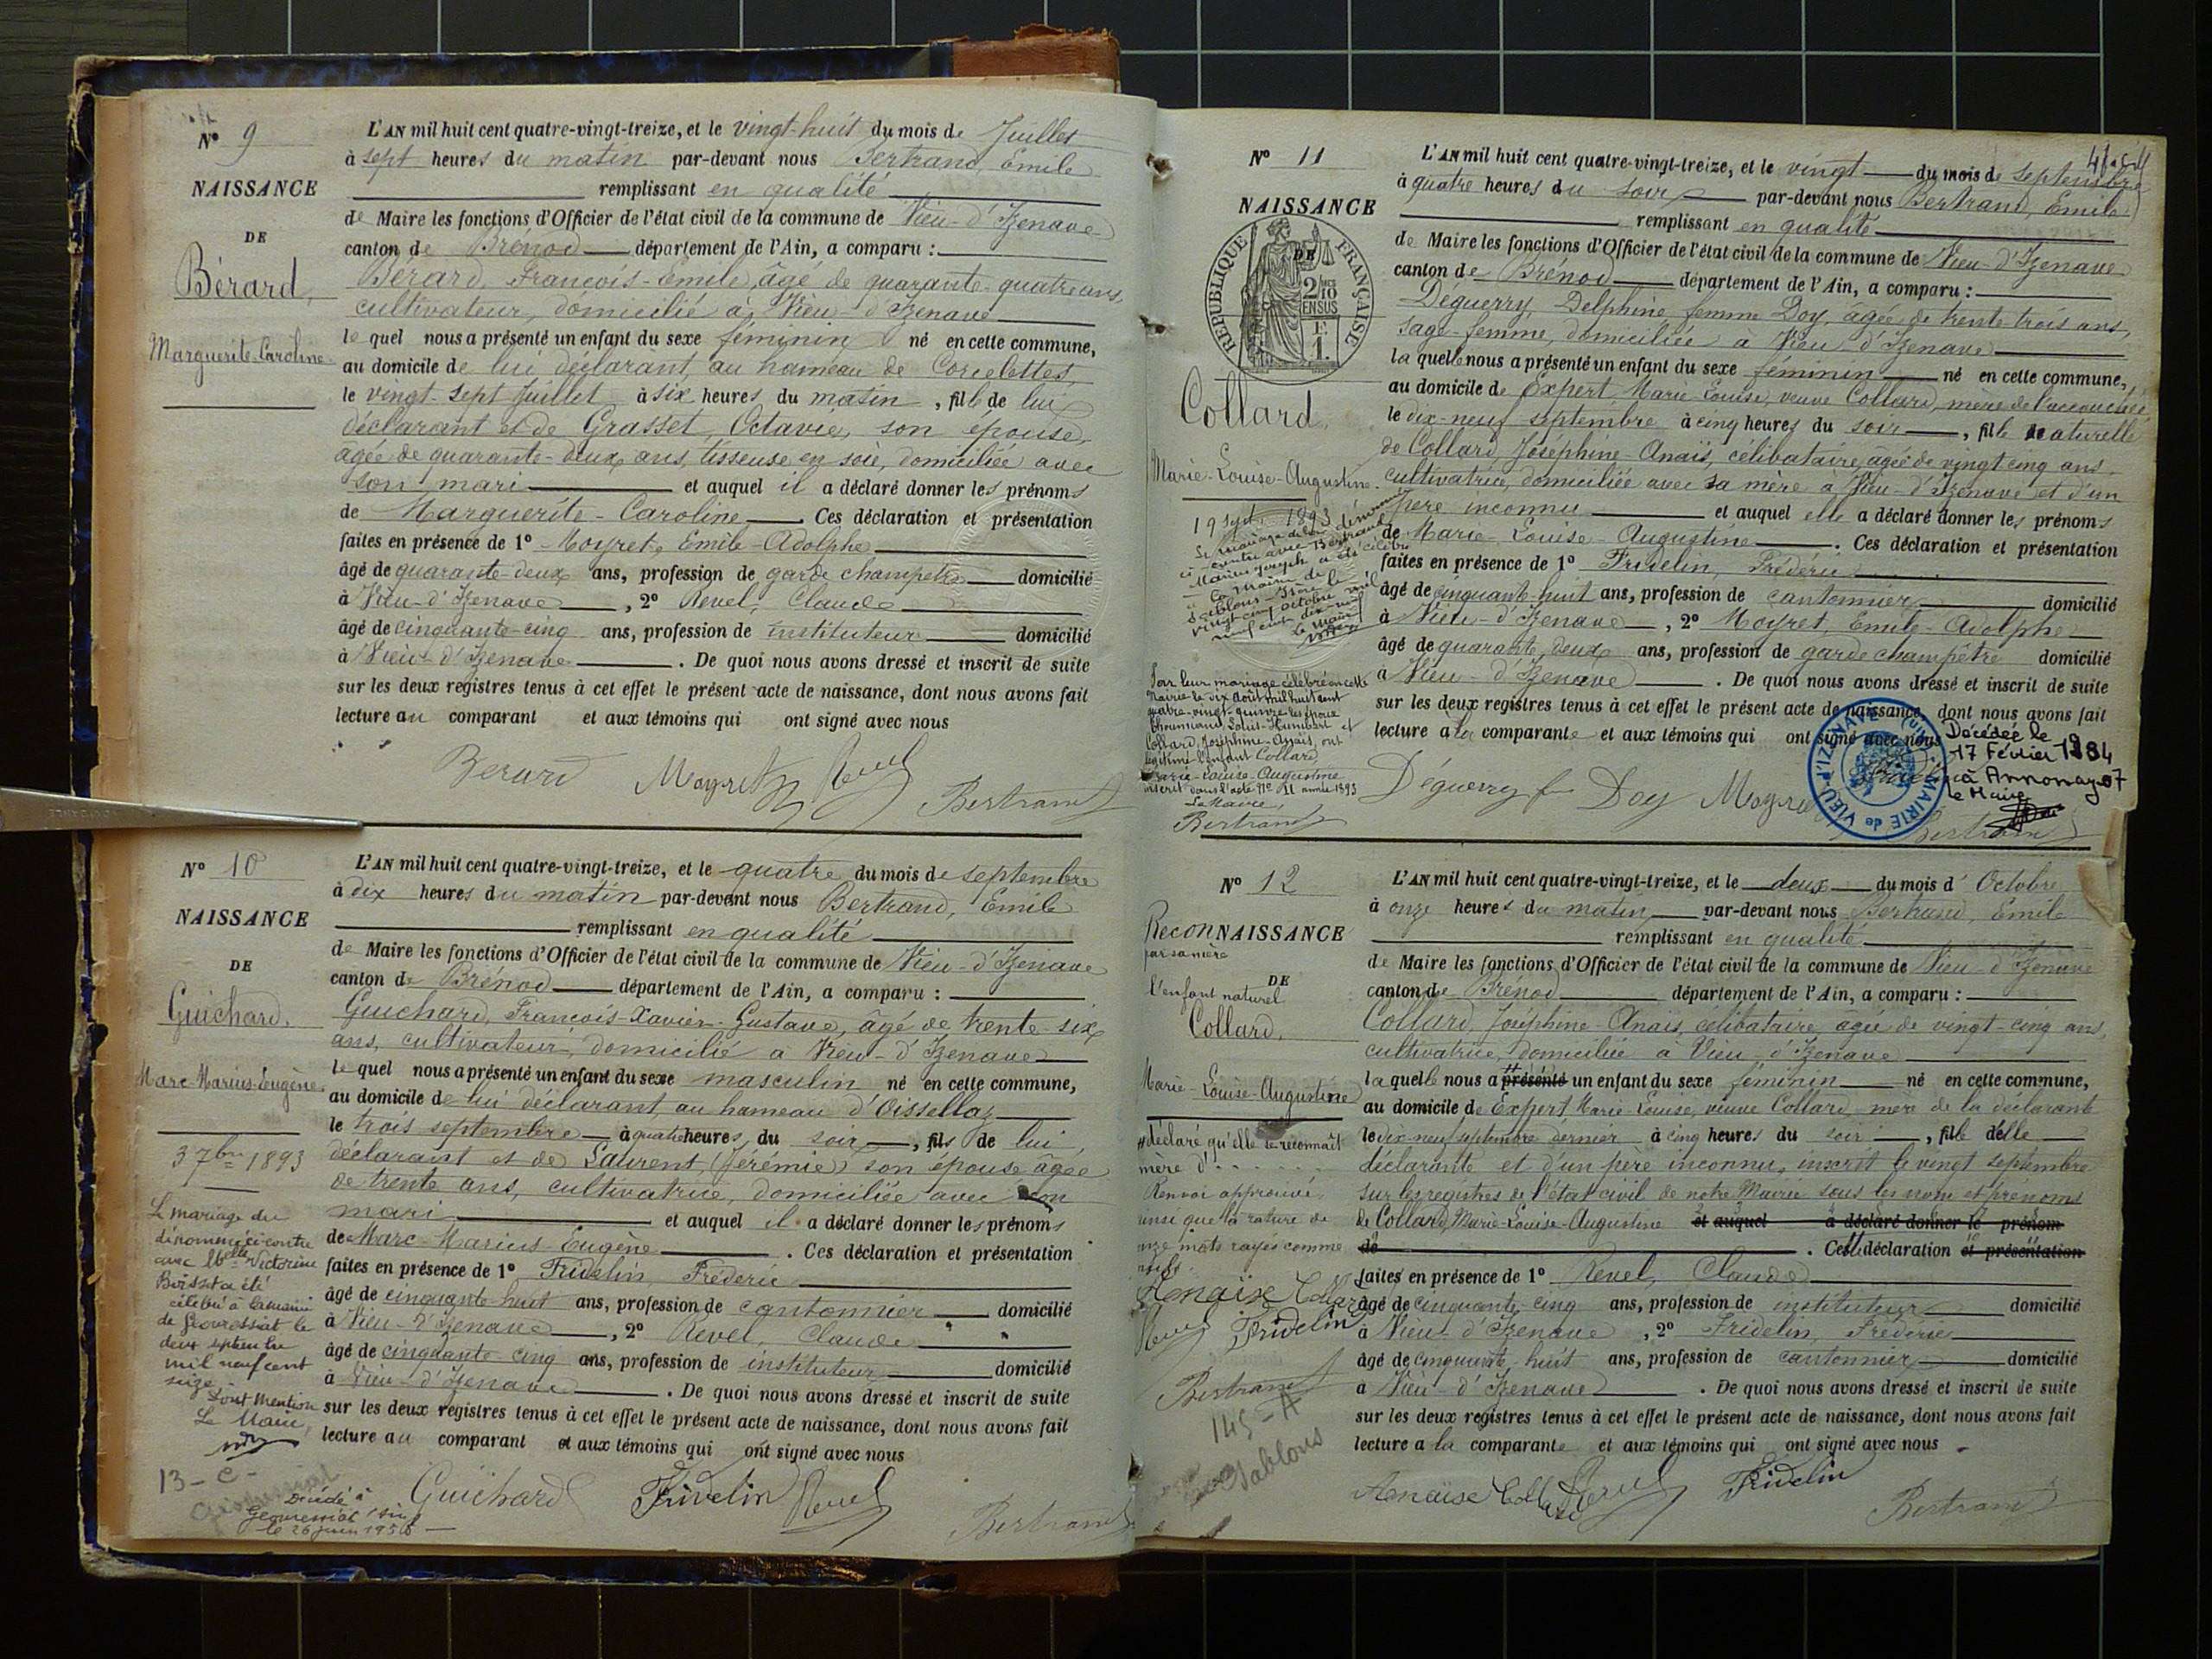 N° 9
NAISSANCE
DE
Bérard,
Marguerite-Caroline
L'AN mil huit cent quatre-vingt-treize, et le vingt-huit du mois de Juillet
à sept heures du matin par-devant nous Bertrand, Emile
remplissant en qualité
de Maire les fonctions d'Officier de l'état civil de la commune de Vieu-d'Izenave
canton de Brénod département de l'Ain, a comparu :
Bérard, François-Emile, âgé de quarante-quatre ans,
cultivateur, domicilié à Vieu-d'Izenave
le quel nous a présenté un enfant du sexe féminin né en cette commune,
au domicile de lui déclarant, au hameau de Corcelettes,
le vingt-sept Juillet à six heures du matin, fille de lui
déclarant et de Grasset, Octavie, son épouse,
âgée de quarante-deux ans, tisseuse en soie, domiciliée avec
son mari et auquel il a déclaré donner les prénoms
de Marguerite-Caroline. Ces déclaration et présentation
faites en présence de 1° Moyret, Emile-Adolphe
âgé de quarante deux ans, profession de garde champêtre domicilié
à Vieu-d'Izenave, 2° Revel, Claude
âgé de cinquante-cinq ans, profession de instituteur domicilié
à Vieu-d'Izenave. De quoi nous avons dressé et inscrit de suite
sur les deux registres tenus à cet effet le présent acte de naissance, dont nous avons fait
lecture au comparant et aux témoins qui ont signé avec nous
Berard Moyret Revel Bertrand
N° 10
NAISSANCE
DE
Guichard,
Marc-Marius-Eugène
3 7bre 1893
Le mariage du
dénommé ci-contre
avec Melle Victorine
Boisset a été
célébré à la mairie
de Géovressiat le
deux septembre
mil neuf cent
seize
Dont mention
Le Maire,
13-C-
Décédé à
Géovressiat
le 26 juin 195
L'AN mil huit cent quatre-vingt-treize, et le quatre du mois de septembre
à dix heures du matin par-devant nous Bertrand, Emile
remplissant en qualité
de Maire les fonctions d'Officier de l'état civil de la commune de Vieu-d'Izenave
canton de Brénod département de l'Ain, a comparu :
Guichard, François-Xavier-Gustave, âgé de trente-six
ans, cultivateur, domicilié à Vieu-d'Izenave
le quel nous a présenté un enfant du sexe masculin né en cette commune,
au domicile de lui déclarant, au hameau d'Oissellaz
le trois septembre à quatre heures du soir, fils de lui
déclarant et de Laurent, (Jérémie) son épouse âgée
de trente ans, cultivatrice, domiciliée avec son
mari et auquel il a déclaré donner les prénoms
de Marc-Marius-Eugène. Ces déclaration et présentation
faites en présence de 1° Fridelin, Frédéric
âgé de cinquante-huit ans, profession de cantonnier domicilié
à Vieu-d'Izenave, 2° Revel, Claude
âgé de cinquante-cinq ans, profession de instituteur domicilié
à Vieu-d'Izenave. De quoi nous avons dressé et inscrit de suite
sur les deux registres tenus à cet effet le présent acte de naissance, dont nous avons fait
lecture au comparant et aux témoins qui ont signé avec nous
Guichard Fridelin Revel Bertrand
N° 11
NAISSANCE
DE
REPUBLIQUE FRANÇAISE
2/10 EN SUS
1 F.
Collard,
Marie-Louise-Augustine
19 sept. 1893
Le mariage de la dénommée
ci-contre avec Bertrand
Marius Joseph a été célébré
à la mairie de
Sablons-Isère le
vingt-cinq octobre mil
neuf cent dix-neuf
Le Maire
Par leur mariage célébré en cette
Mairie le dix août mil huit cent
quatre-vingt-quinze les époux
Louis-Humbert et
Collard, Joséphine-Anaïs, ont
légitimé l'enfant Collard,
Marie-Louise-Augustine
inscrit dans l'acte N° 11 année 1893
Le Maire,
Bertrand
L'AN mil huit cent quatre-vingt-treize, et le vingt du mois de septembre
à quatre heures du soir par-devant nous Bertrand, Emile
remplissant en qualité
de Maire les fonctions d'Officier de l'état civil de la commune de Vieu-d'Izenave
canton de Brénod département de l'Ain, a comparu :
Déguerry, Delphine, femme Doy, âgée de trente-trois ans,
sage-femme, domiciliée à Vieu-d'Izenave
la quelle nous a présenté un enfant du sexe féminin né en cette commune,
au domicile de Expert, Marie Louise, veuve Collard, mère de l'accouchée,
le dix-neuf septembre à cinq heures du soir, fille naturelle
de Collard, Joséphine-Anaïs, célibataire, âgée de vingt cinq ans,
cultivatrice, domiciliée avec sa mère à Vieu-d'Izenave et d'un
père inconnu et auquel elle a déclaré donner les prénoms
de Marie-Louise-Augustine. Ces déclaration et présentation
faites en présence de 1° Fridelin, Frédéric
âgé de cinquante-huit ans, profession de cantonnier domicilié
à Vieu-d'Izenave, 2° Moyret, Emile-Adolphe
âgé de quarante deux ans, profession de garde champêtre domicilié
à Vieu-d'Izenave. De quoi nous avons dressé et inscrit de suite
sur les deux registres tenus à cet effet le présent acte de naissance, dont nous avons fait
lecture à la comparante et aux témoins qui ont signé avec nous
Décédée le
17 Février 1984
à Annonay 07
le Maire
MAIRIE de VIEU-D'IZENAVE
Déguerry f Doy Moyret Bertrand
N° 12
ReconNAISSANCE
par sa mère
DE
l'enfant naturel
Collard,
Marie-Louise-Augustine
# déclaré qu'elle se reconnaît
mère d'
Renvoi approuvé,
ainsi que la rature de
onze mots rayés comme
nuls.
Anaïse Collard
Revel Fridelin
Bertrand
145-A
Sablons
L'AN mil huit cent quatre-vingt-treize, et le deux du mois d'Octobre
à onze heures du matin par-devant nous Bertrand, Emile
remplissant en qualité
de Maire les fonctions d'Officier de l'état civil de la commune de Vieu-d'Izenave
canton de Brénod département de l'Ain, a comparu :
Collard, Joséphine-Anaïs, célibataire, âgée de vingt-cinq ans,
cultivatrice, domiciliée à Vieu-d'Izenave
la quelle nous a # présenté un enfant du sexe féminin né en cette commune,
au domicile de Expert Marie-Louise, veuve Collard, mère de la déclarante
le dix-neuf septembre dernier à cinq heures du soir, fille d'elle
déclarante et d'un père inconnu, inscrit le vingt septembre
sur les registres de l'état civil de notre Mairie sous les nom et prénoms
de Collard, Marie-Louise-Augustine et auquel a déclaré donner le prénom
de . Cette déclaration et présentation
faites en présence de 1° Revel, Claude
âgé de cinquante-cinq ans, profession de instituteur domicilié
à Vieu-d'Izenave, 2° Fridelin, Frédéric
âgé de cinquante-huit ans, profession de cantonnier domicilié
à Vieu-d'Izenave. De quoi nous avons dressé et inscrit de suite
sur les deux registres tenus à cet effet le présent acte de naissance, dont nous avons fait
lecture à la comparante et aux témoins qui ont signé avec nous
Anaïse Collard Revel Fridelin Bertrand